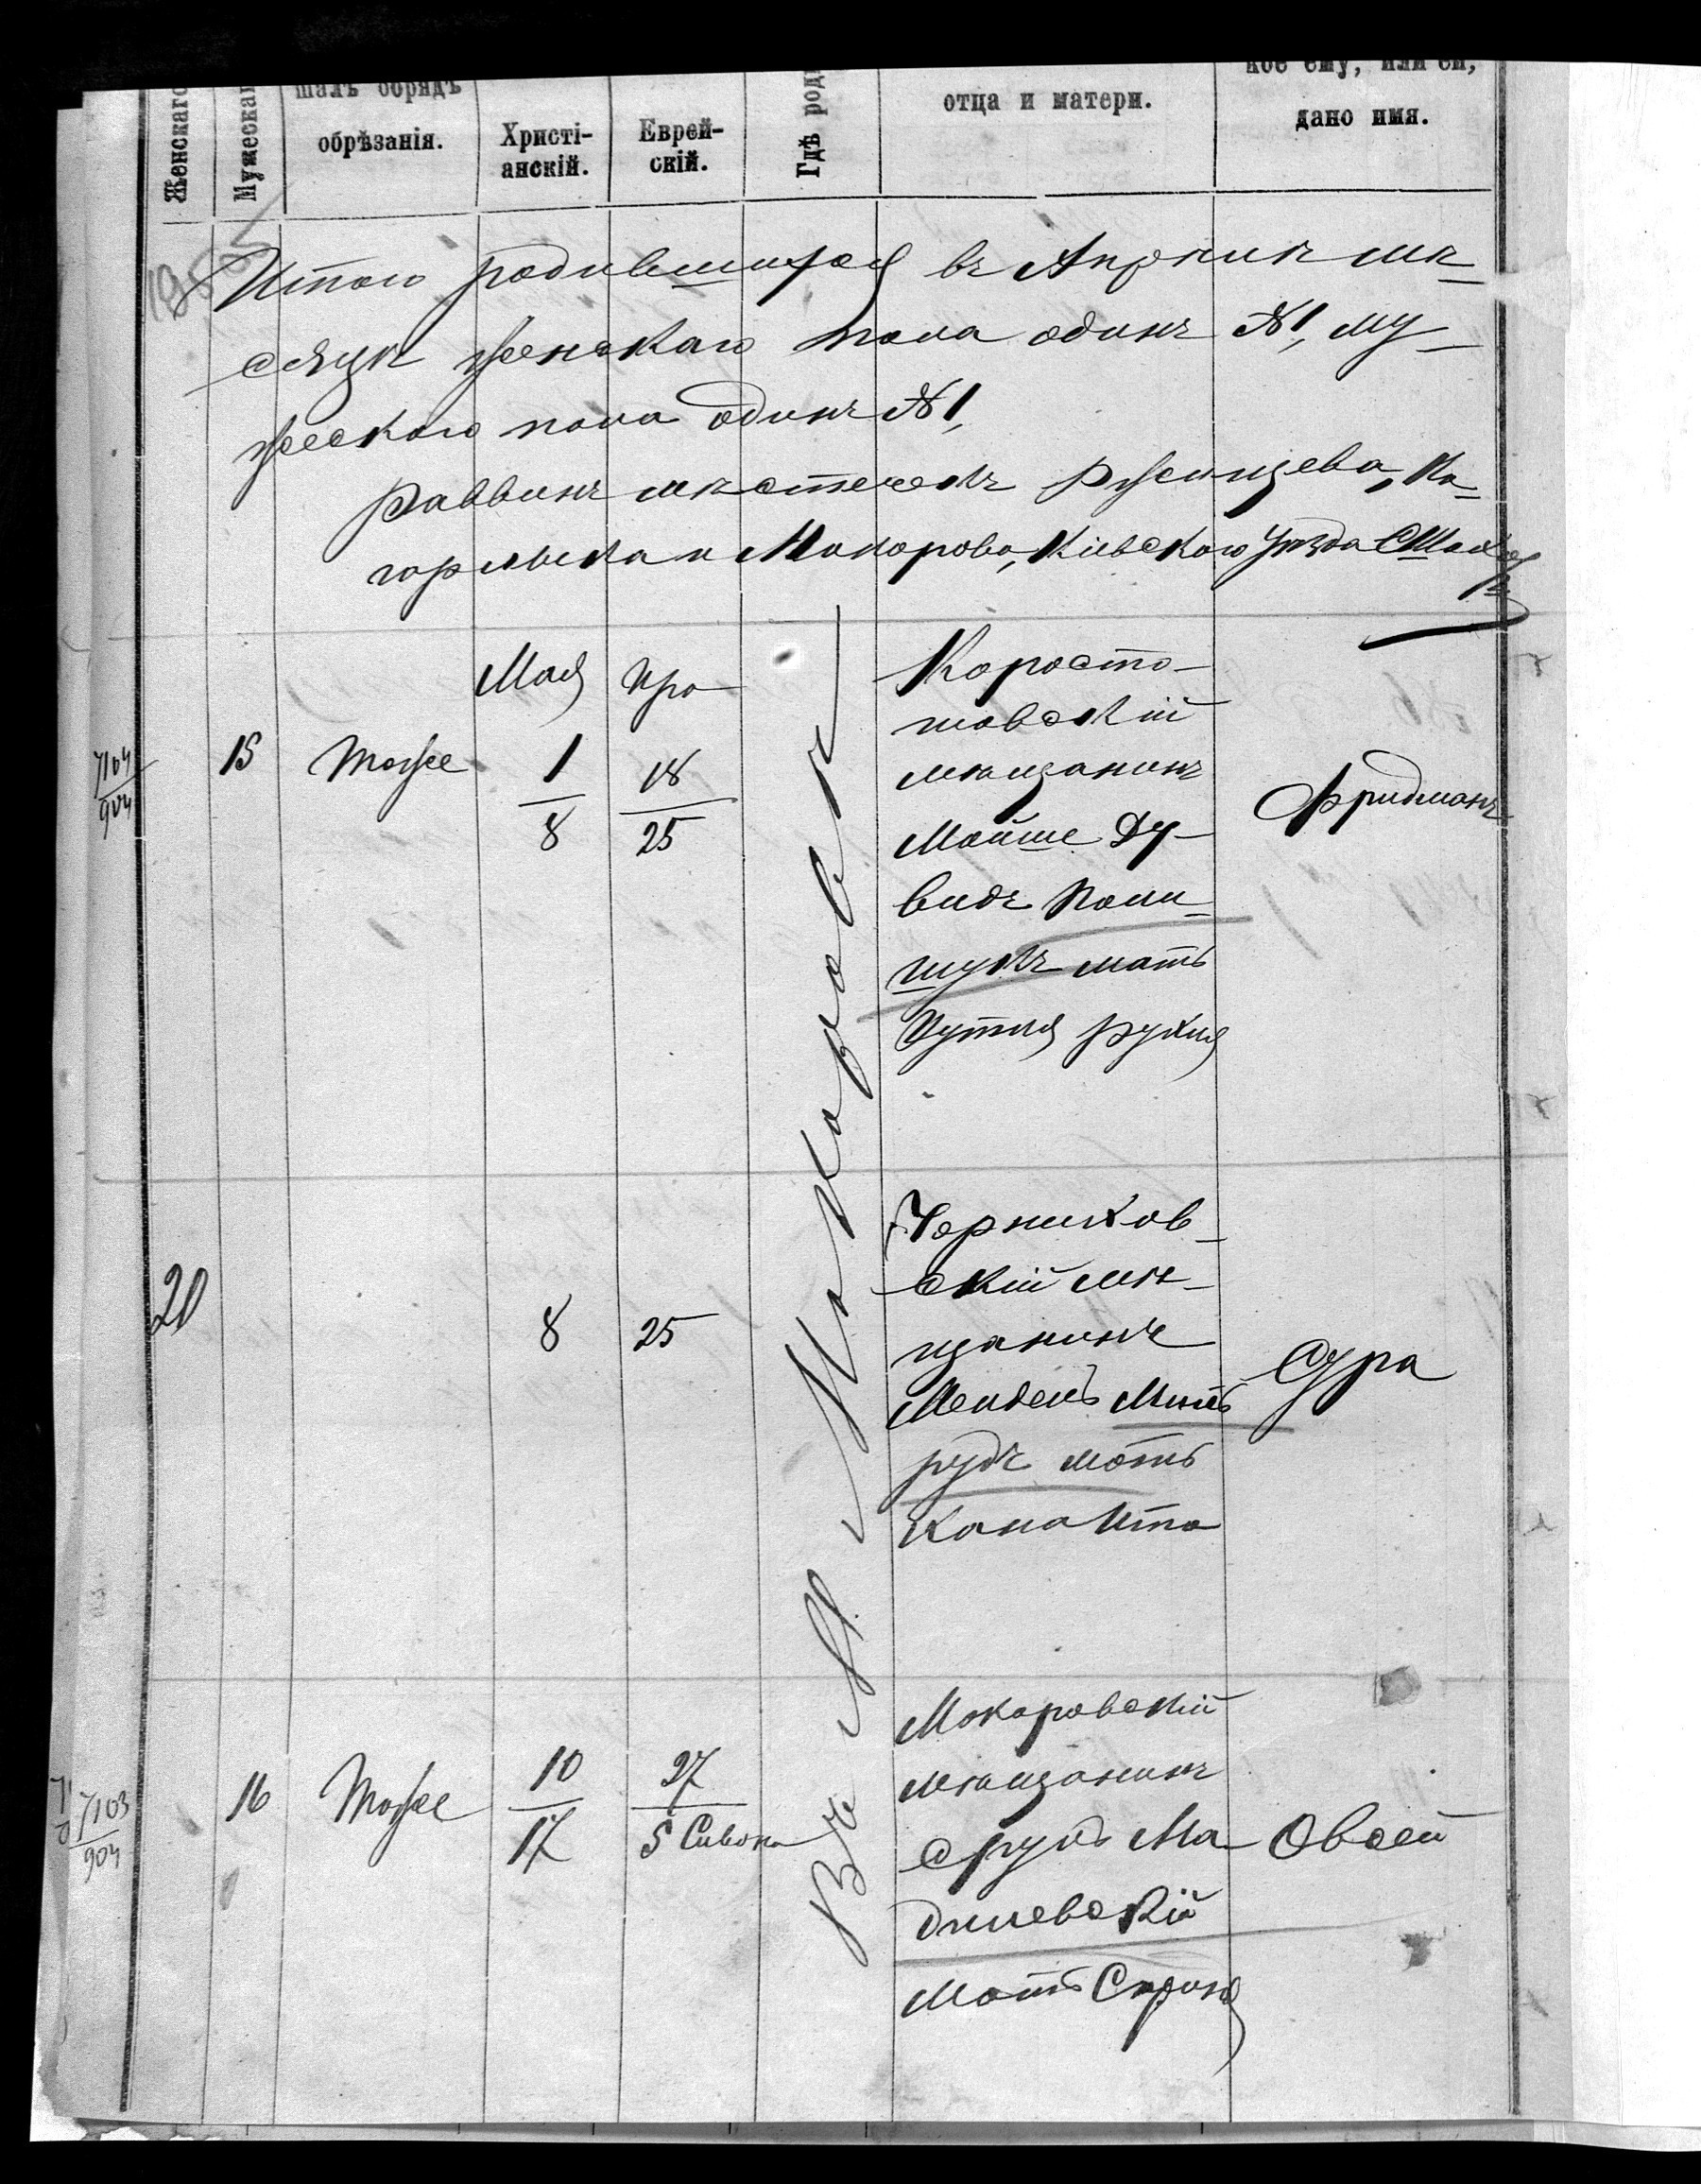 Женскаго
Мужескаг
шалъ обрядъ
обрѣзанія.
Христі-
анскій.
Еврей-
скій.
Гдѣ роди
отца и матери.
кое ему, или ей,
дано имя.
Итого родившихся въ Апрѣлѣ мѣ-
сяцѣ женскаго пола одинъ №1, му-
жескаго пола одинъ №1,
Раввинъ мѣстечекъ Ржищева, Ка-
горлыка и Макарова, Кіевскаго Уѣзда
Мая Иро
7164
904
15 Тоже 1 18
8 25
Коросты-
шевскій
мѣщанинъ
Мойше Ду-
видъ Поли-
щукъ мать
Рухля
Фридманъ
Въ М. Макаровѣ
20 8 25
Черняхов-
скій мѣ-
щанинъ
Мендель Миль-
рудъ мать
Хана Ита
Сура
7103
904
16 Тоже 10 27
17 5 Сивона
Макаровскій
мѣщанинъ
Сруль Ма-
дылевскій
мать
Овсей